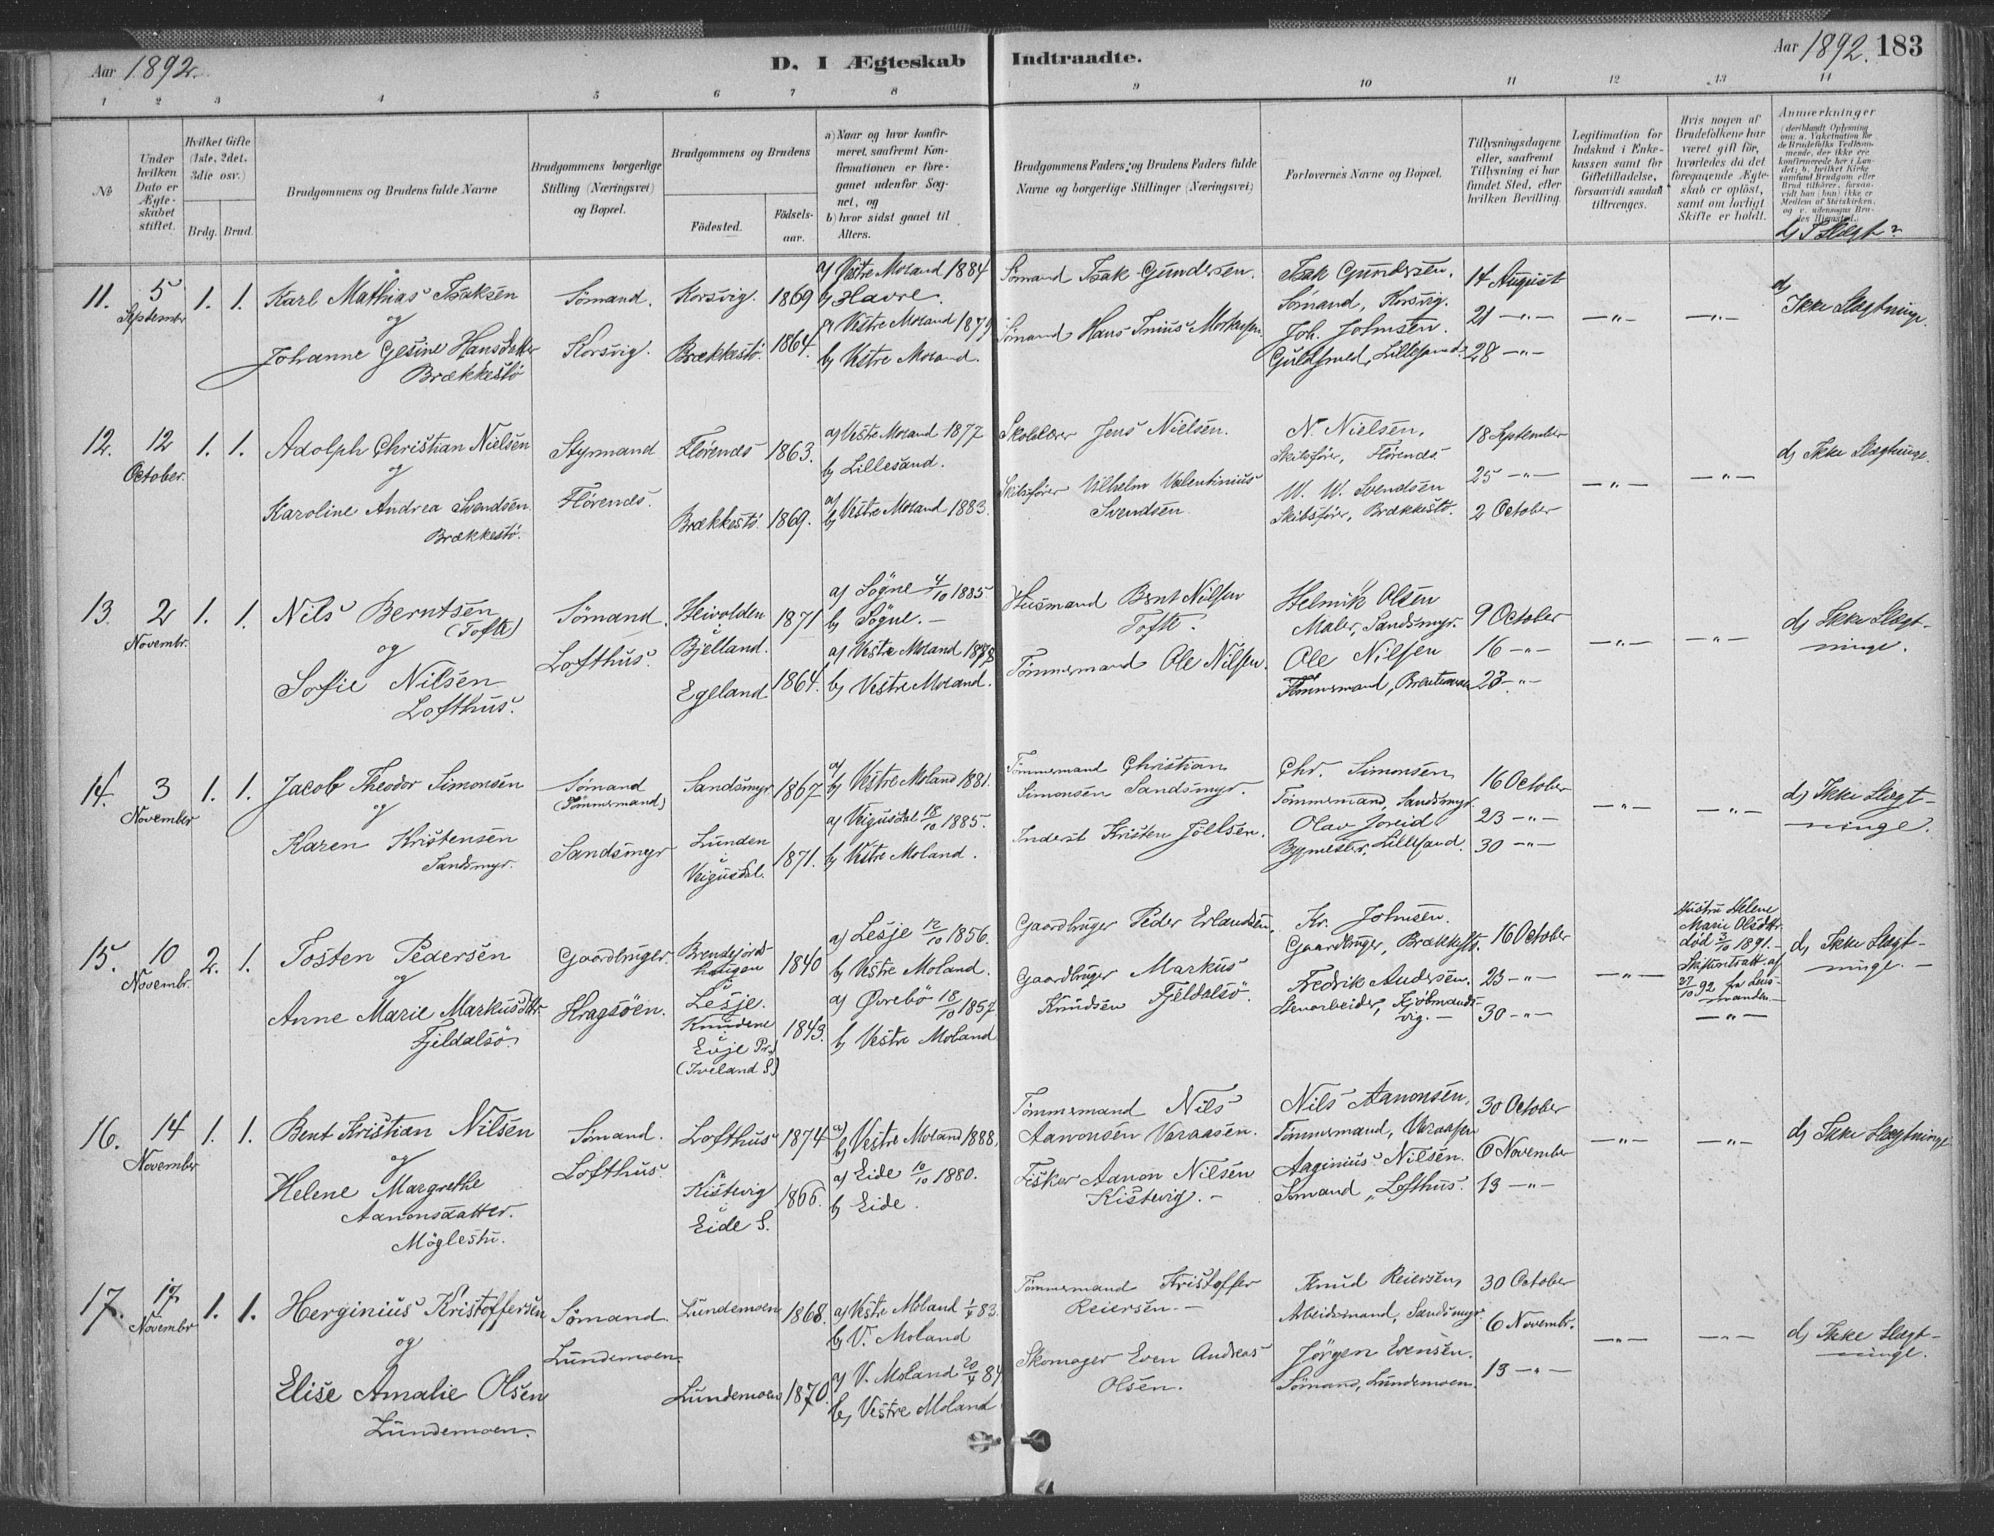 Aar 1892.
D. I Ægteskab Indtraadte.
Aar 1892. 183
1 2 3 4 5 6 7 8 9 10 11 12 13 14
No
Under hvilken Dato er Ægteskabet stiftet.
Hvilket Gifte (1ste, 2det, 3die osv.)
Brdg. Brud.
Brudgommens og Brudens fulde Navne
Brudgommens borgerlige Stilling (Næringsvei) og Bopæl.
Brudgommens og Brudens
Fødested. Fødselsaar.
a) Naar og hvor konfirmeret, saafremt Konfirmationen er foregaaet udenfor Sognet, og
b) hvor sidst gaaet til Alters.
Brudgommens Faders og Brudens Faders fulde Navne og borgerlige Stillinger (Næringsvei)
Forlovernes Navne og Bopæl.
Tillysningsdagene eller, saafremt Tillysning ei har fundet Sted, efter hvilken Bevilling.
Legitimation for Indskud i Enkekassen samt for Giftetilladelse, forsaavidt saadan tiltrænges.
Hvis nogen af Brudefolkene har været gift før, hvorledes da det foregaaende Ægteskab er opløst, samt om lovligt Skifte er holdt.
Anmerkninger
d) I Slægt?
11. 5 September 1. 1.
Karl Mathias Isaksen
og
Johanne Gesine Hansdatter
Brækkestø
Sømand.
Korsvig.
Korsvig. 1869
Brækkestø. 1864.
a) Vestre Moland 1884
b) Havre.
a) Vestre Moland 1879
b) Vestre Moland.
Sømand Isak Gundersen.
Sømand Hans Tinius Mortensen
Isak Gundersen.
Sømand, Korsvig.
Joh. Johnsen.
Guldsmed, Lillesand.
14 August
21 -"-
28 -"-
-"- -"-
d) Ikke Slægtninge.
12. 12 October. 1. 1.
Adolph Christian Nielsen
og
Karoline Andrea Svendsen
Brækkestø.
Styrmand
Flørends.
Flørends 1863.
Brækkestø. 1869.
a) Vestre Moland 1877
b) Lillesand.
a)
b) Vestre Moland 1883.
Skolelærer Jens Nielsen.
Skibsfører Vilhelm Valentinius
Svendsen.
N. Nielsen,
Skibsfører, Flørends.
W. W. Svendsen
Skibsfører, Brækkestø.
18 September
25 -"-
2 October
-"- -"-
d) Ikke Slægtninge.
13. 2 Novembr. 1. 1.
Nils Berntsen
(Tofte)
og
Sofie Nilsen
Lofthus.
Sømand
Lofthus.
Heivolden
i
Bjelland. 1871
Egeland 1864.
a) Søgne 4/10 1885.
b) Søgne. -
a) Vestre Moland
b) Vestre Moland.
Husmand Bernt Nilsen
Tofte.
Tømmermand Ole Nilsen.
Helmik Olsen
Maler, Sandsmyr.
Ole Nilsen
Tømmermand,
9 October
16 -"-
23 -"-
-"- -"-
d) Ikke Slægtninge.
14. 3 November 1. 1.
Jacob Theodor Simonsen
og
Karen Kristensen
Sandsmyr.
Sømand
(Tømmermand)
Sandsmyr
Sandsmyr 1867
Lunden
i
Veigusdal. 1871.
a)
b) Vestre Moland 1881.
a) Veigusdal 18/10 1885.
b) Vestre Moland.
Tømmermand Christian
Simonsen Sandsmyr.
Inderst Kristen Jøllsen.
Chr. Simonsen,
Tømmermand, Sandsmyr.
Olav Joreid
Bygmester, Lillesand.
16 October
23 -"-
30 -"-
-"- -"-
d) Ikke Slægtninge.
15. 10 Novembr. 2. 1.
Tosten Pedersen
og
Anne Marie Markusdtr.
Fjeldalsø.
Gaardbruger
Kragsøen.
i
Lesje. 1840
Knudene
Evje Pr.
(Iveland S.) 1843.
a) Lesje 12/10 1856.
b) Vestre Moland.
a) Øvrebø 18/10 1857
b) Vestre Moland
Gaardbruger Peder Erlandsen,
Gaardbruger Markus
Knudsen Fjeldalsø.
Kr. Johnsen.
Gaardbruger, Brækkestø.
Fredrik Andersen.
Stenarbeider, Kjøbmandsvig. -
16 October
23 -"-
30 -"-
-"-
Hustru Helene
Marie Olsdtr.
død 3/10 1891. -
Skifteretsatt. af
27/10 92 fra Lensmanden
-"-
d) Ikke Slægtninge. -
16. 14 November 1. 1.
Bent Kristian Nilsen
og
Helene Margrethe
Aanonsdatter.
Møglestu.
Sømand.
Lofthus.
Lofthus 1874
Kistevig
Eide S. 1866.
a)
b) Vestre Moland 1888.
a) Eide 10/10 1880.
b) Eide.
Tømmermand Nils
Aanonsen Varaasen.
Fisker Aanon Nilsen
Kistevig. -
Nils Aanonsen,
Tømmermand, Varaasen
Aaginius Nilsen.
Sømand, Lofthus.
30 October
6 November
13 -"-
-"- -"-
d) Ikke Slægtninge
17. 17. Novembr 1. 1.
Herginius Kristoffersen
og
Elise Amalie Olsen
Lundemoen.
Sømand.
Lundemoen.
Lundemoen 1868.
Lundemoen 1870.
a) Vestre Moland 1/4 83.
b) V. Moland
a) V. Moland 20/4 84
b) Vestre Moland
Tømmermand Kristoffer
Reiersen. -
Skomager Even Andreas
Olsen.
Knud Reiersen,
Arbeidsmand, Sandsmyr.
Jørgen Evensen.
Sømand, Lundemoen.
30 October
6 Novembr.
13 -"-
-"- -"-
d) Ikke Slægtninge.